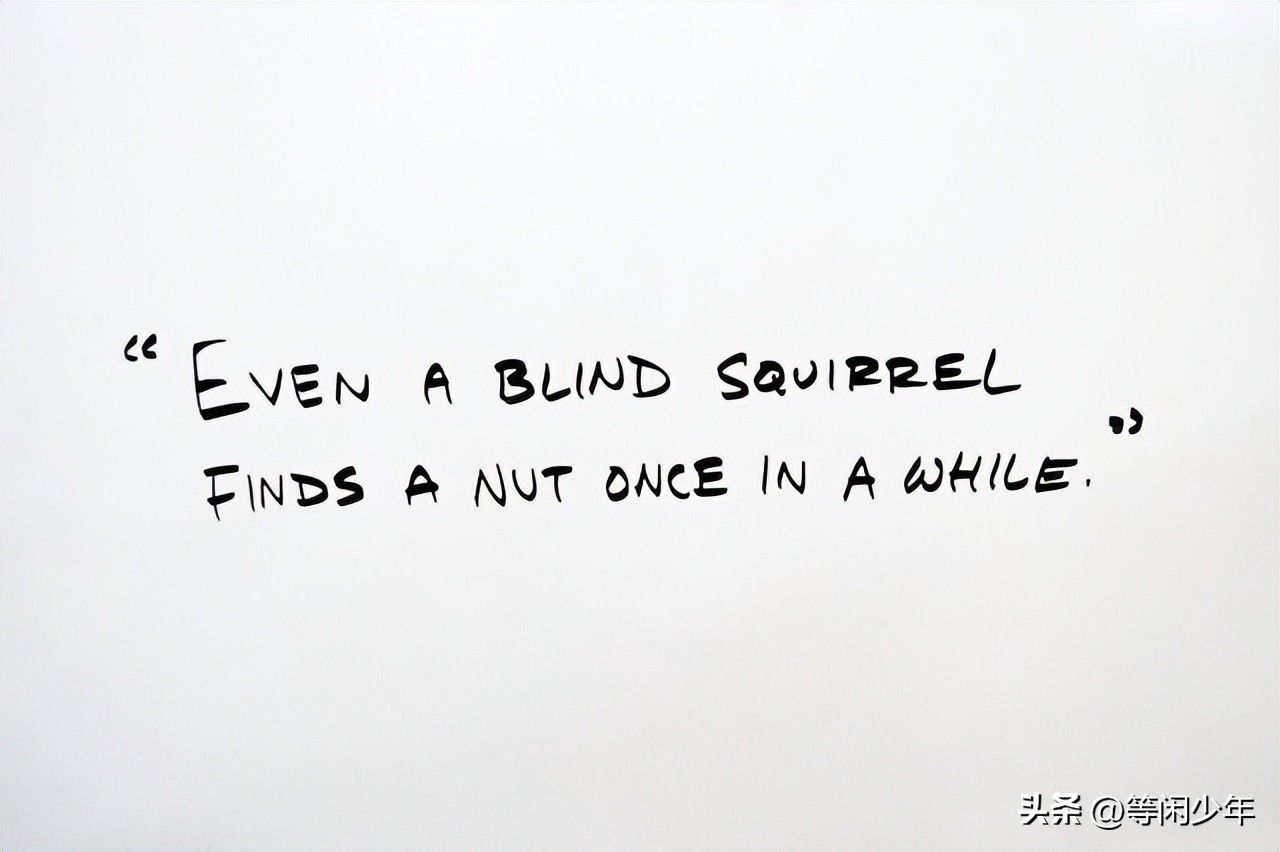 “EVEN A BLIND SQUIRREL
FINDS A NUT ONCE IN A WHILE.”
头条 @等闲少年